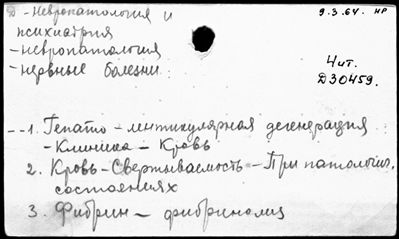 - Невропатология и
9.3.64. НР
психиатрия
- невропатология
- нервные болезни.
Чит.
Д30459.
--1. Гепато - лентикулярная дегенерация
- Клиника - Кровь
2. Кровь - Свертываемость - При патологич.
состояниях
3. Фибрин - фибринолиз